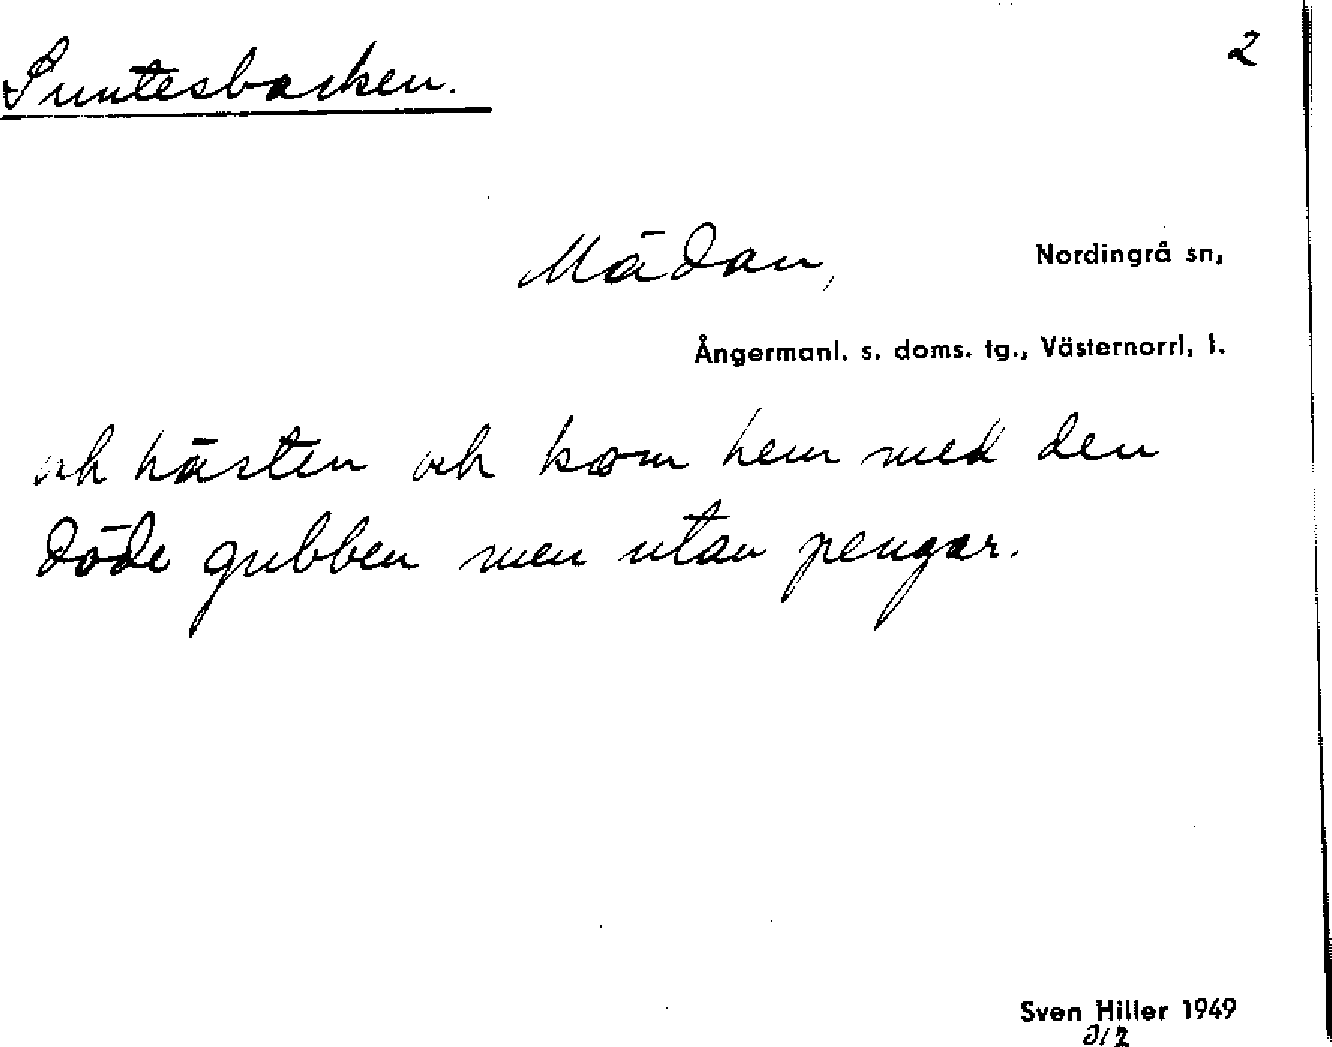 Suntesbacken.
2
Mädan,
Nordingrå sn,
Ångermanl. s. doms. tg., Västernorrl, l.
och hästen och kom hem med den
döde gubben men utan pengar.
Sven Hiller 1949